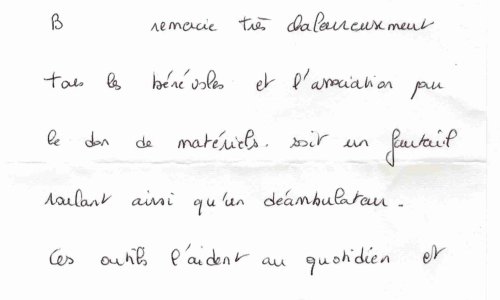 B remercie très chaleureusement
tous les bénévoles et l'association pour
le don de matériels. soit un fauteuil
roulant ainsi qu'un déambulateur.
Ces outils l'aident au quotidien et